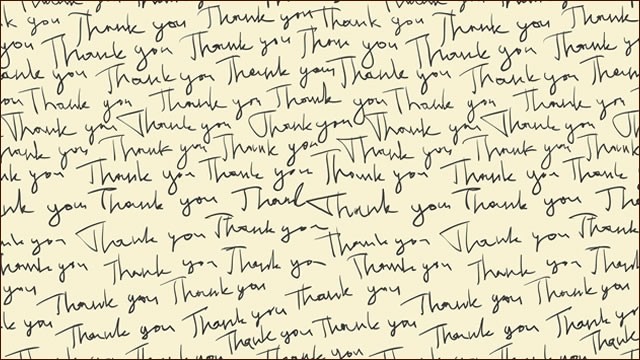 you Thank you Thank you Thank you Thank
you Thank you Thank you Thank you Thank you
Thank you Thank you Thank you Thank you Thank
you Thank you Thank you Thank you Thank you Thank
Thank you Thank you Thank you Thank you Thank you
Thank you Thank you Thank you Thank you Thank you
you Thank you Thank you Thank you Thank you
you Thank you Thank Thank you Thank you Thank
you Thank you Thank you Thank you Thank you
Thank you Thank you Thank you Thank you Thank you
you Thank you Thank you Thank you Thank you Thank you
you Thank you Thank you Thank you Thank you Thank you